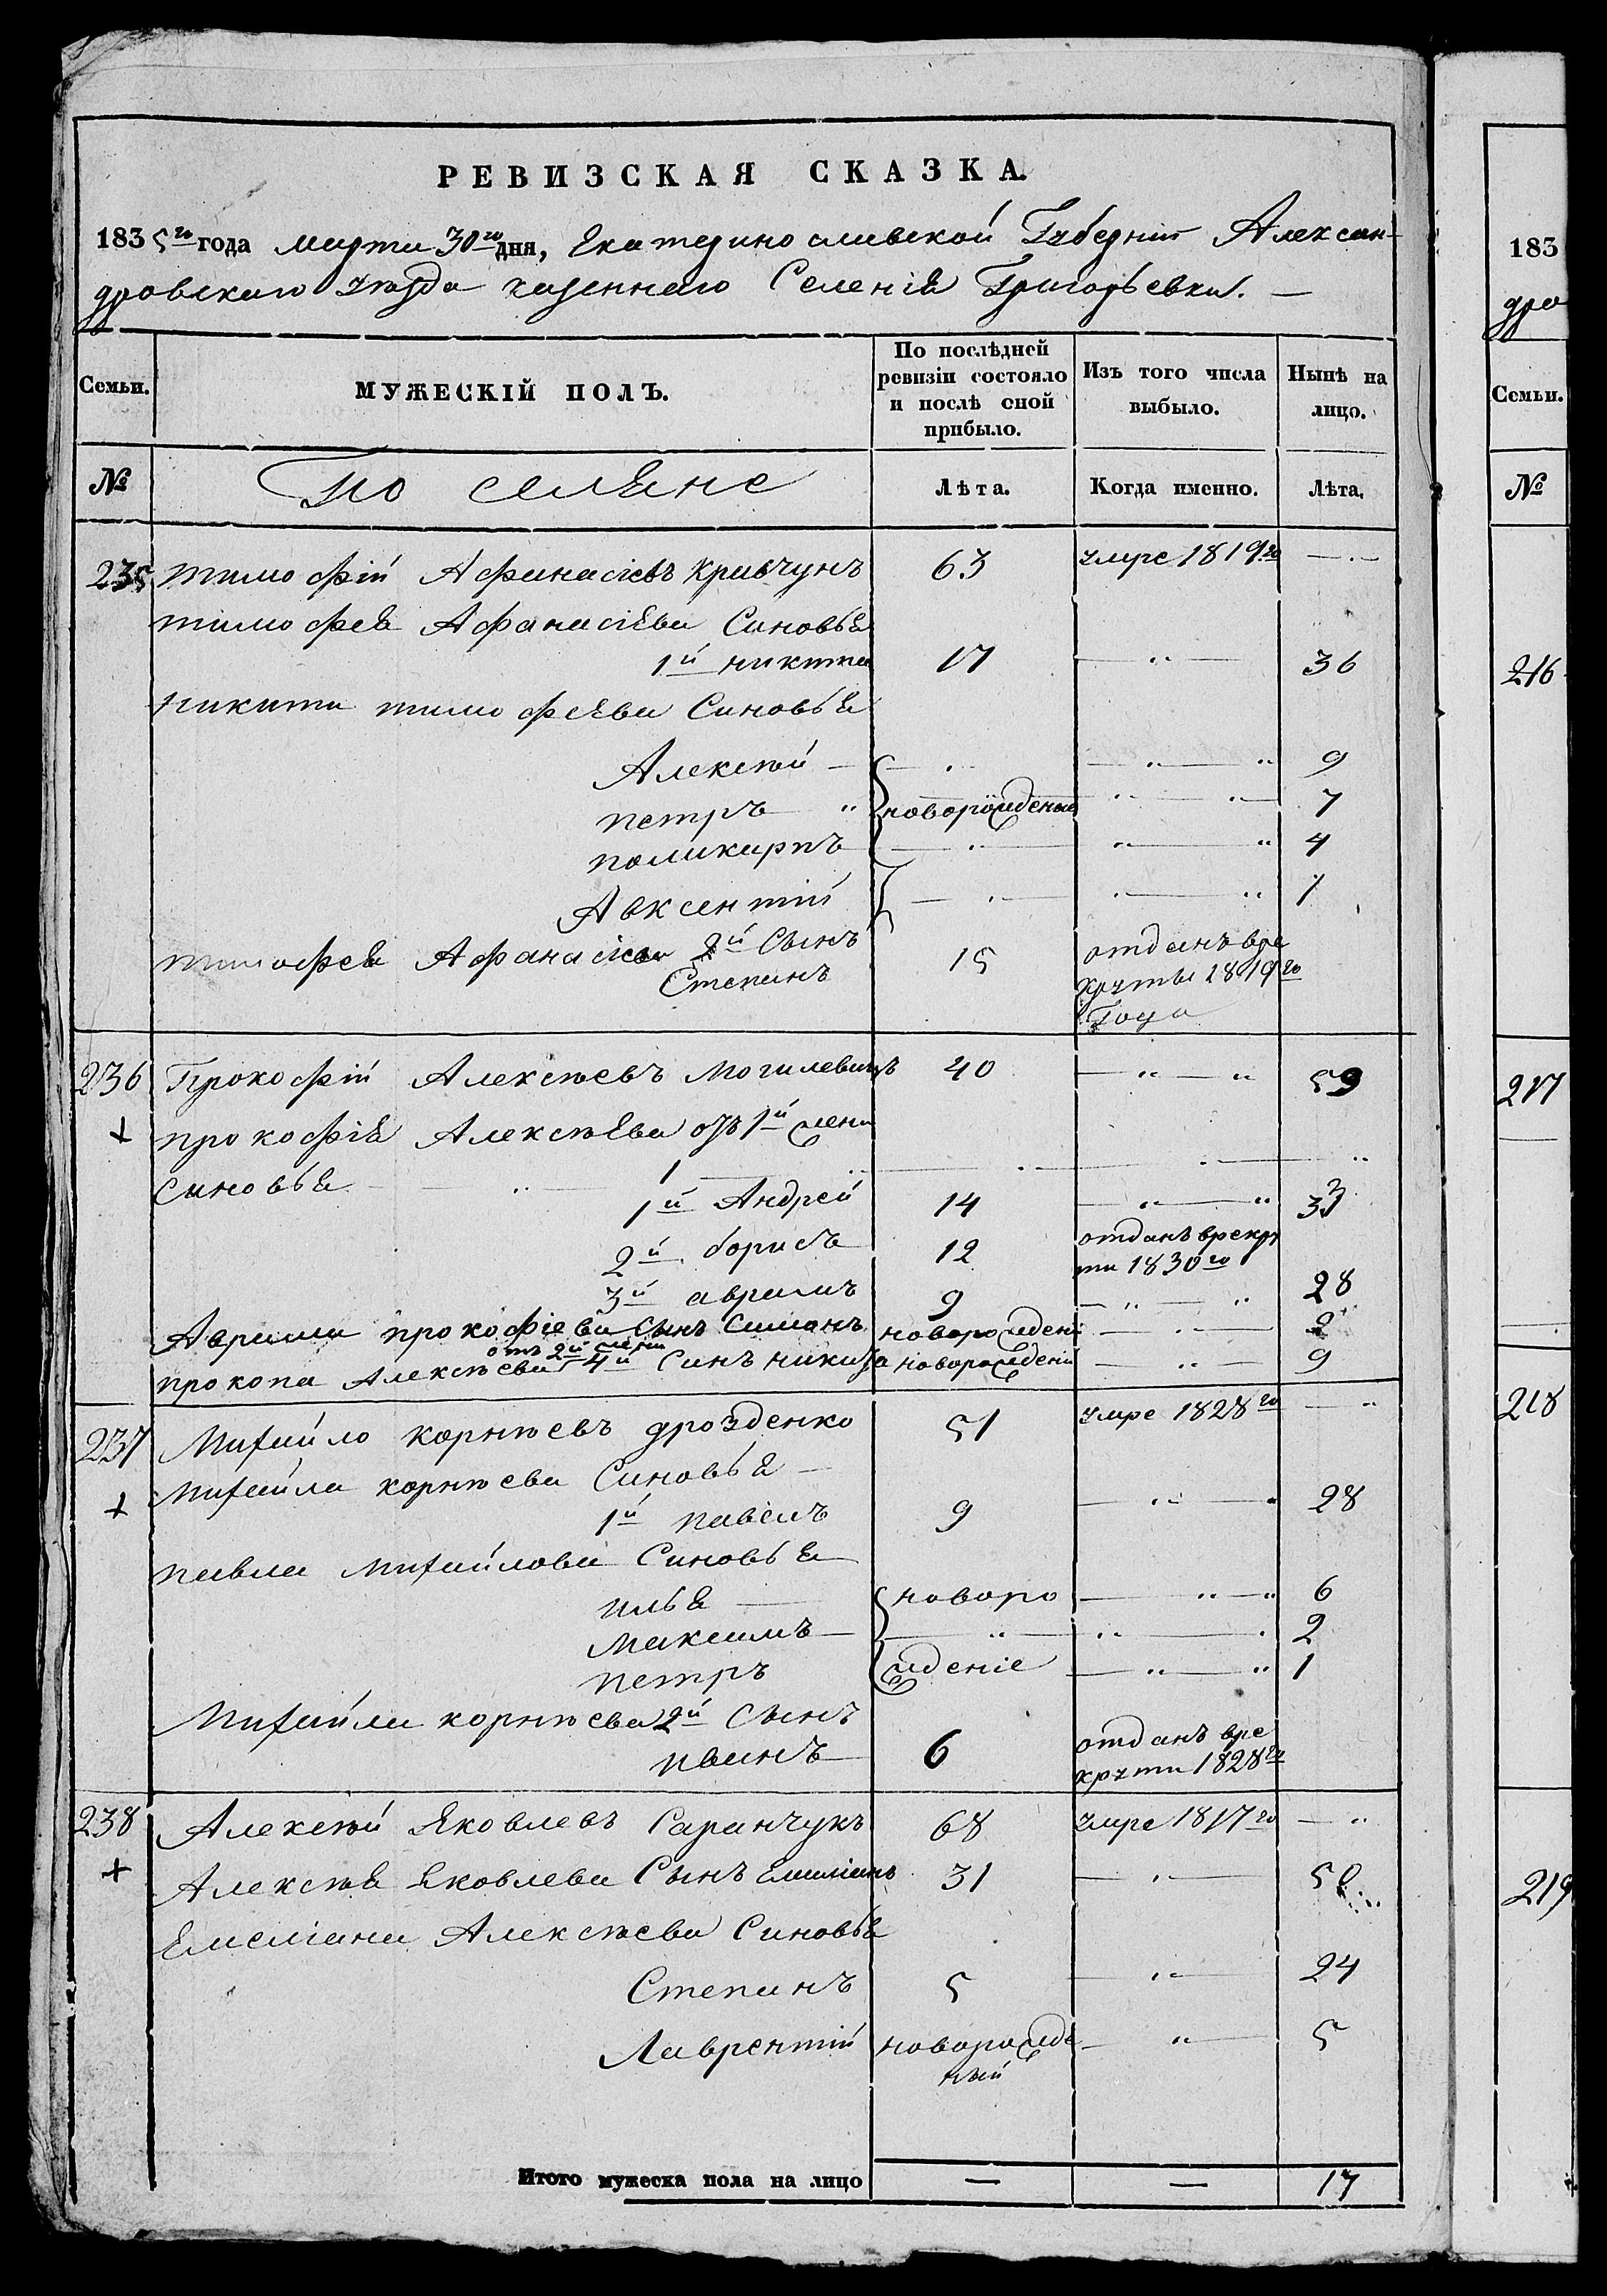 РЕВИЗСКАЯ СКАЗКА.
1835го года марта 30го дня, Екатеринославской Губерніи Алексан-
дровскаго уѣзда казеннаго Селенія Григорьевки. —
Семьи. МУЖЕСКІЙ ПОЛЪ. По послѣдней ревизіи состояло и послѣ оной прибыло. Изъ того числа выбыло. Нынѣ на лицо.
№ Поселяне Лѣта. Когда именно. Лѣта.
235 тимофій Афанасіевъ Кривчунъ 63 умре 1819го —
тимофея Афанасіева Синовья
1й никита 17 — 36
никити тимофеева Синовья
Алексѣй — 9
петръ новорожденые 7
поликарпъ — 4
Авксентій — 1
тимофея Афанасіева 2й Сынъ Степанъ 15 отданъ вре
круты 1819го
Года
236 Прокофій Алексѣевъ Могилевецъ 40 — 59
+ прокофія Алексѣева отъ 1й жени
синовья
1й Андрей 14 — 33
2й борисъ 12 отданъ врекру
ти 1830го
3й аврамъ 9 — 28
Аврама прокофіева Сынъ Симонъ новорождени — 2
отъ 2й жени
прокопа Алексѣева 4й Синъ никита новорождени — 9
237 Михайло корнѣевъ дрозденко 51 умре 1828го —
+ Михайла корнѣева Синовья —
1й павелъ 9 — 28
павла Михайлова Синовья
илья — новоро — 6
Максимъ — 2
петръ жденіе — 1
Михайла корнѣева 2й Сынъ
иванъ 6 отданъ вре
крути 1828го
238 Алексѣй Яковлевъ Саранчукъ 68 умре 1817го —
+ Алексѣя Яковлева Сынъ Емиліанъ 31 — 50
Емеліана Алексѣева Синовья
Степанъ 5 — 24
Лаврентій новорожде — 5
ный
Итого мужеска пола на лицо — — 17
183
дро
Семьи.
№
216
217
218
219